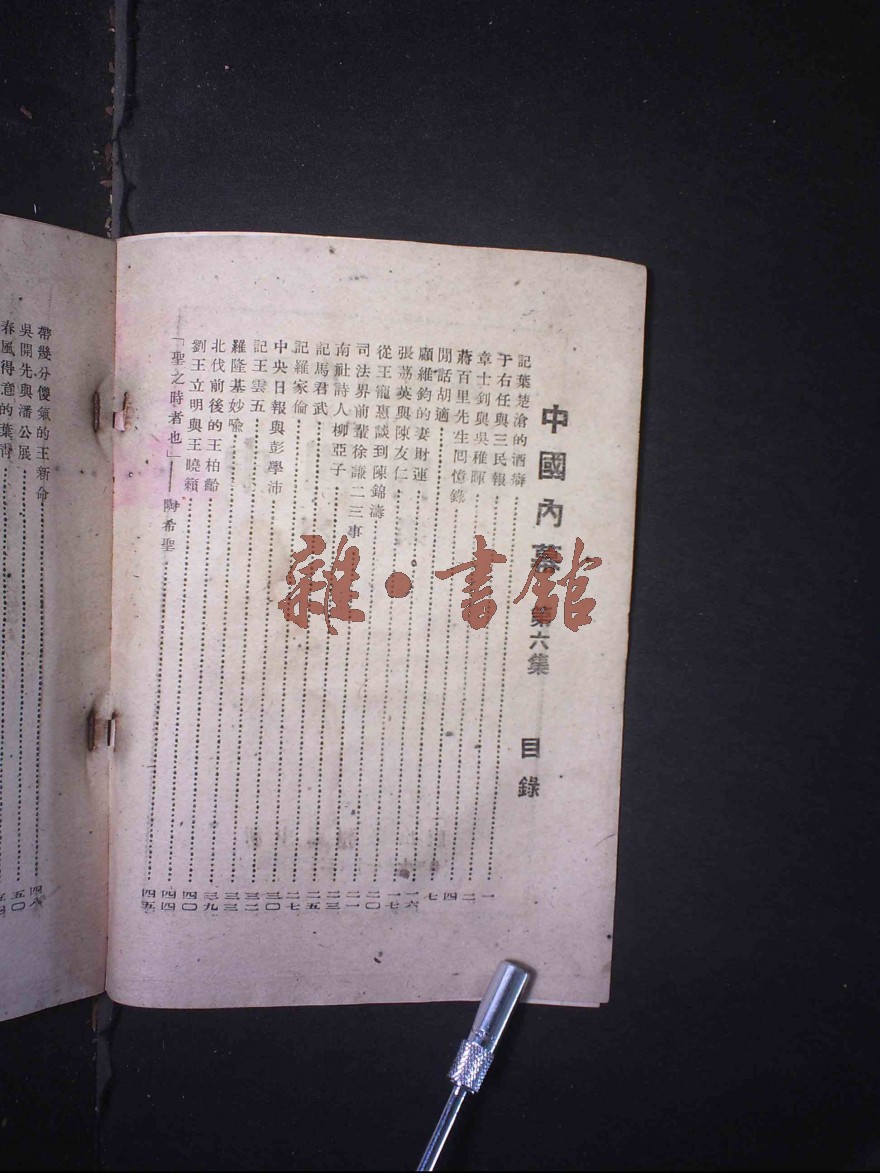 中國內幕 第六集 目錄
記葉楚滄的酒癖……一
于右任與三民報……二
章士釗與吳稚暉……四
蔣百里先生囘憶錄……七
閒話胡適……一六
顧維鈞的妻財運……一七
張荔英與陳友仁……二〇
從王寵惠談到陳錦濤……二一
司法界前輩徐謙二三事……二三
南社詩人柳亞子……二五
記馬君武……二七
記羅家倫……三〇
中央日報與彭學沛……三二
記王雲五……三三
羅隆基妙喩……三九
北伐前後的王柏齡……四〇
劉王立明與王曉籟……四四
「聖之時者也」——陶希聖……四五
帶幾分傻氣的王新命……四六
吳開先與潘公展……五〇
春風得意的葉青
雜·書館